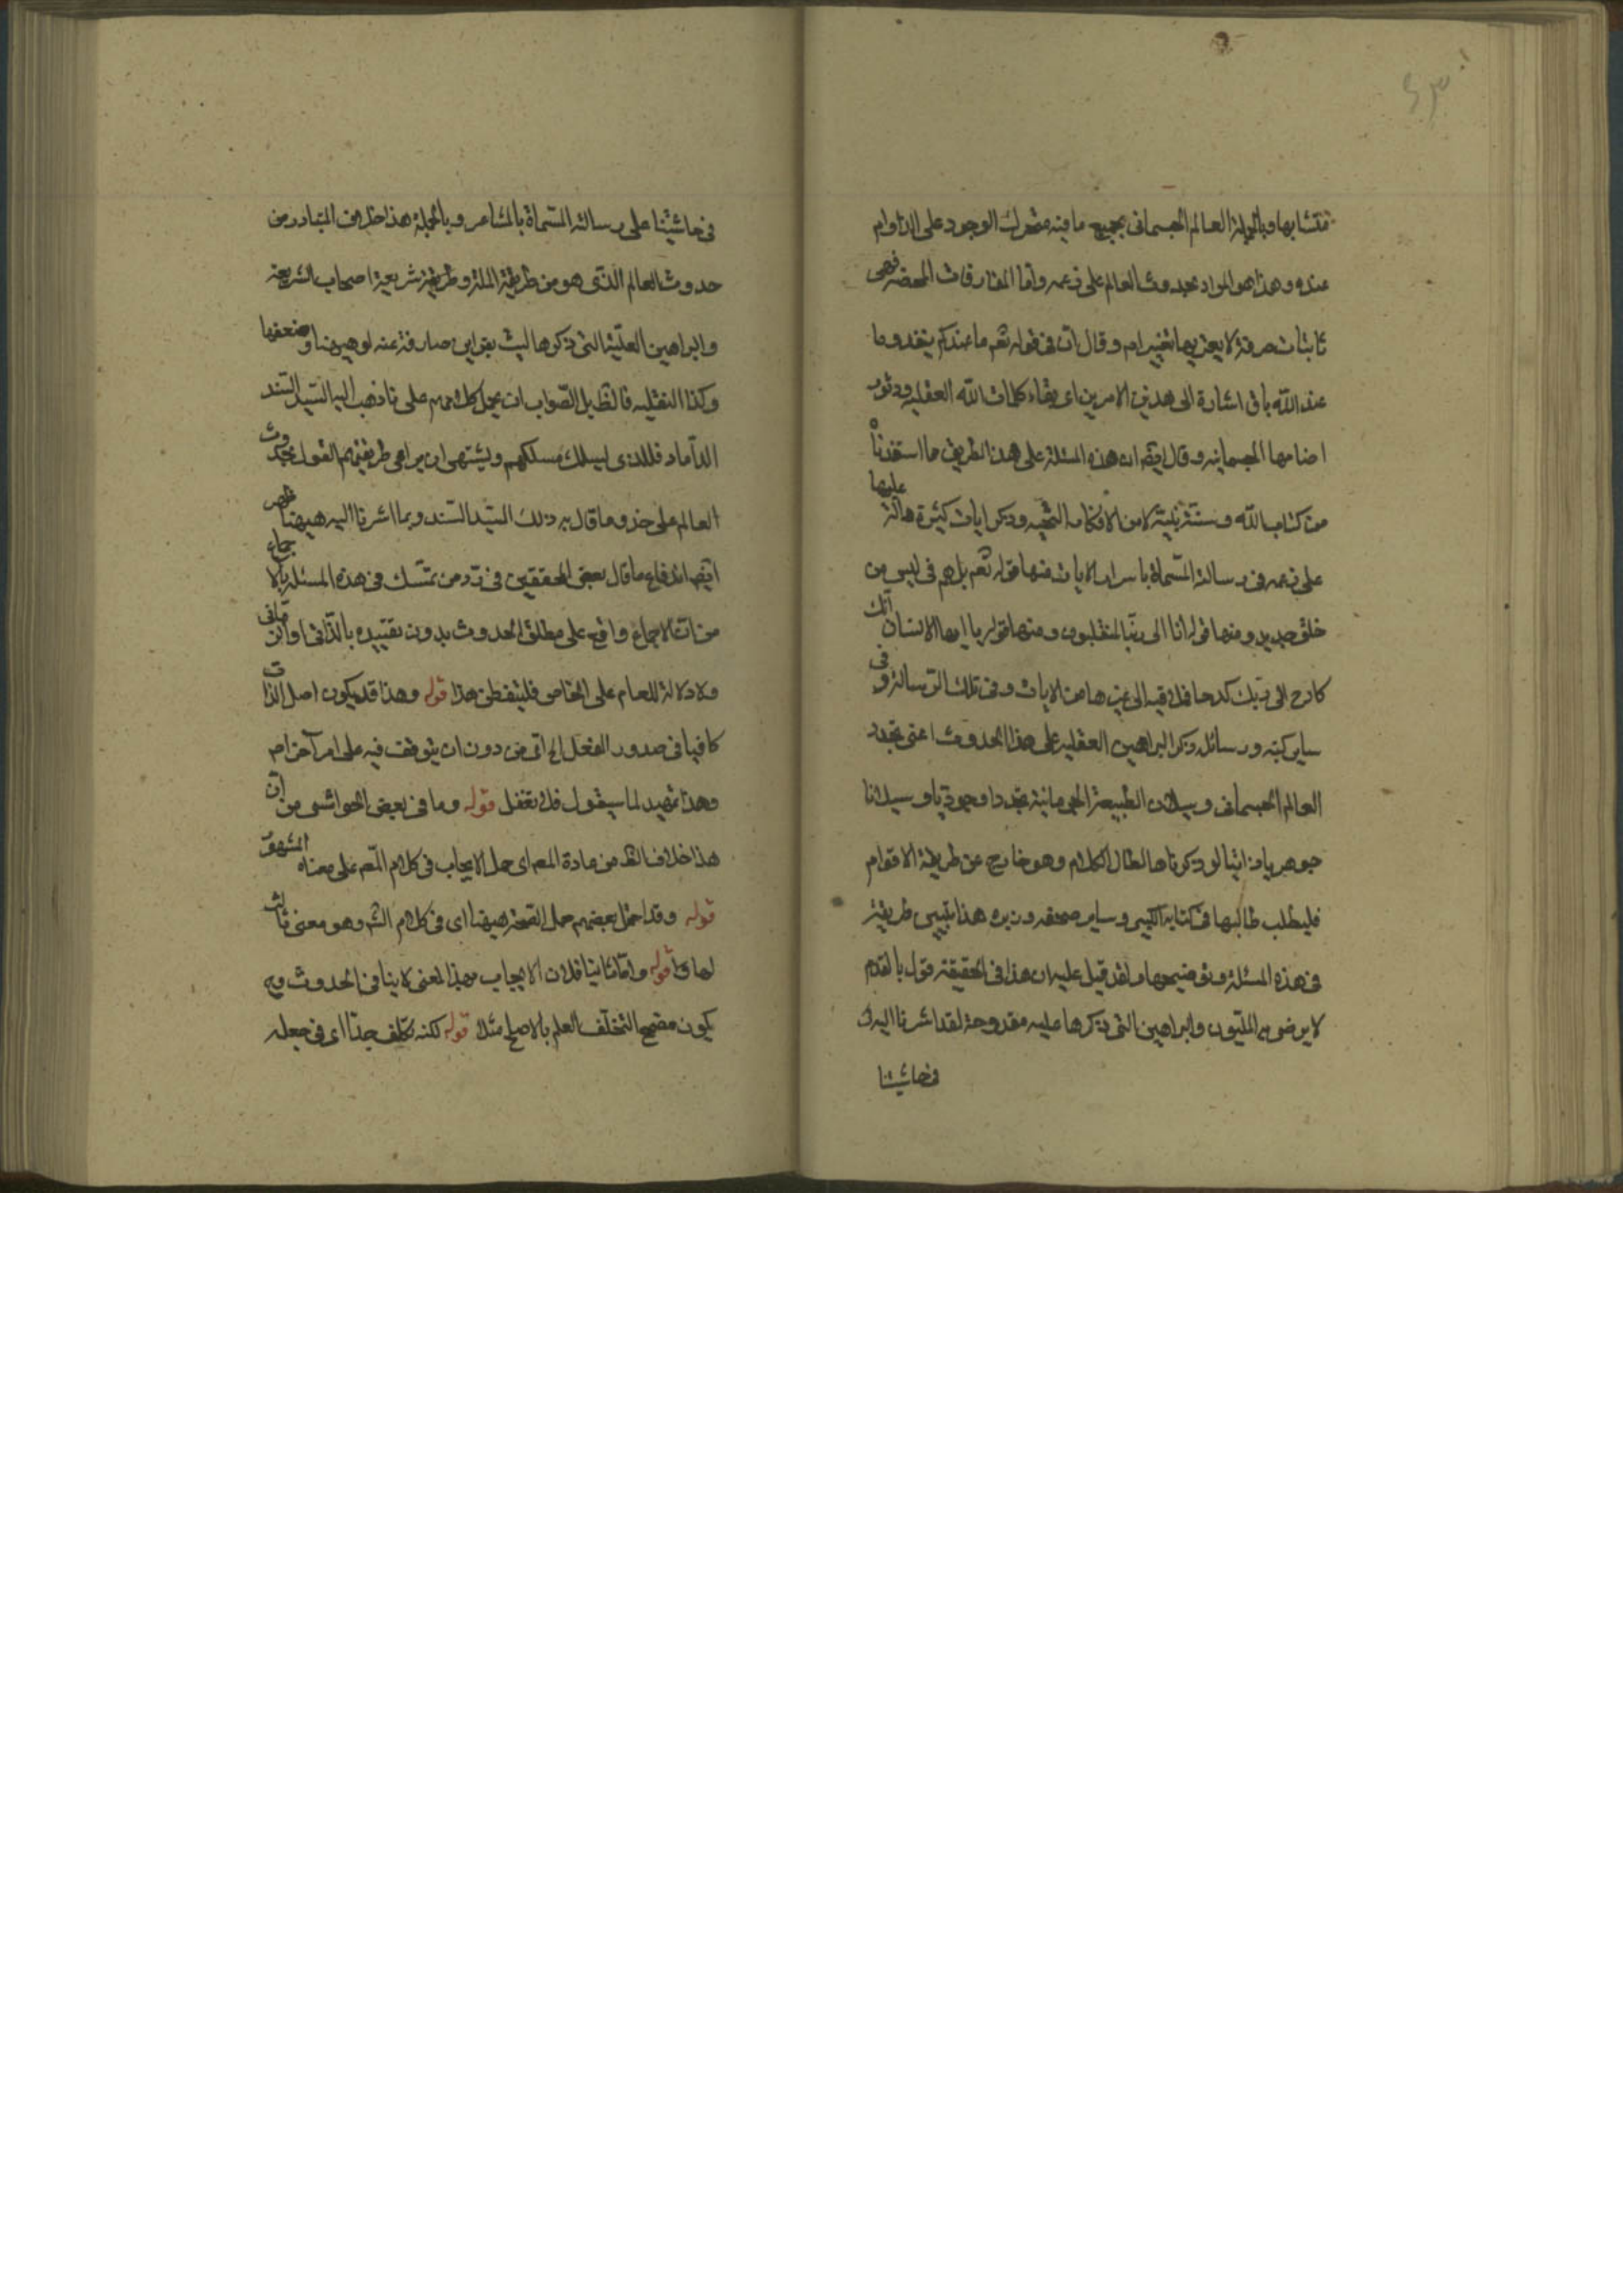 متشابها وبالجملة العالم الجسمانى بجميع ما فيه متحرك الوجود على الدوام
عنده وهذا هو المراد بحدوث العالم على زعمه واما المفارقات المحضه فهى
ثابتات صرفة لا يعتريها تغيير ام وقال ان فى قوله تعم ما عندكم ينفد وما
عند الله باق اشارة الى هذين الامرين اى بقاء كلمات الله العقليه ودثور
اصنامها الجسمانيه وقال ايضا ان هذه المسئلة على هذا الطريق مما استفدناه
من كتاب الله وسنة نبيه لا من الافكار البحثيه وذكر ايات كثيرة دالة عليها
على زعمه فى رسالته المسماة باسرار الايات منها قوله تعم بل هم فى لبس من
خلق جديد ومنها قوله انا الى ربنا لمنقلبون ومنها قوله يا ايها الانسان انك
كادح الى ربك كدحا فملاقيه الى غيرها من الايات وفى تلك الرسالة وفى
ساير كتبه ورسائله ذكر البراهين العقليه على هذا الحدوث اعنى تجدد
العالم الجسمانى وسيلان الطبيعة الجرمانية تجددا وجوديا وسيلانا
جوهريا ذاتيا لو ذكرناها لطال الكلام وهو خارج عن طريقة الاقوام
فليطلب طالبها فى كتابه الكبير وساير صحفه وزبره هذا تبيين طريقته
فى هذه المسئلة وتوضيحها ولقد قيل عليه ان هذا فى الحقيقة قول بالقدم
لا يرضى به المليون والبراهين التى ذكرها عليه مقدوحة لقد اشرنا اليه
فى حاشيتنا
فى حاشيتنا على رسالته المسماة بالمشاعر وبالجملة هذا خلاف المتبادر من
حدوث العالم الذى هو من طريقة الملة وطريقة شريعة اصحاب الشريعة
والبراهين العقلية التى ذكروها ليست بقرائن صارفة عنه لوهنها وضعفها
وكذا النقليه فالظ بل الصواب ان يحمل كلامهم على ما ذهب اليه السيد السند
الداماد فللذى يسلك مسلكهم ويشتهى ان يراعى طريقتهم القول بحدوث
العالم على حذو ما قال به ذلك السيد السند وبما اشرنا اليه ههنا ظهر
ايضا اندفاع ما قال بعض المحققين فى رد من تمسك فى هذه المسئلة بالاجماع
من ان الاجماع واقع على مطلق الحدوث بدون تقييده بالذاتى او الزمانى
ولا دلالة للعام على الخاص فليتفطن هذا قوله وهذا قد يكون اصل الذات
كافيا فى صدور الفعل اى من دون ان يتوقف فيه على امر آخر ام
وهذا تمهيد لما سيقول فلا تغفل قوله وما فى بعض الحواشى من ان
هذا خلاف الظ من عادة المص اى حمل الايجاب فى كلام المص على معناه المشهور
قوله وقد احتمل بعضهم حمل الصحة ههنا اى فى كلام الش وهو معنى ثالث
لها قوله واما ثانيا فلان الايجاب بهذا المعنى لا ينافى الحدوث وح
يكون مصحح التخلف العلم بالاصلح مثلا قوله لكنه تكلف جدا اى فى جعله